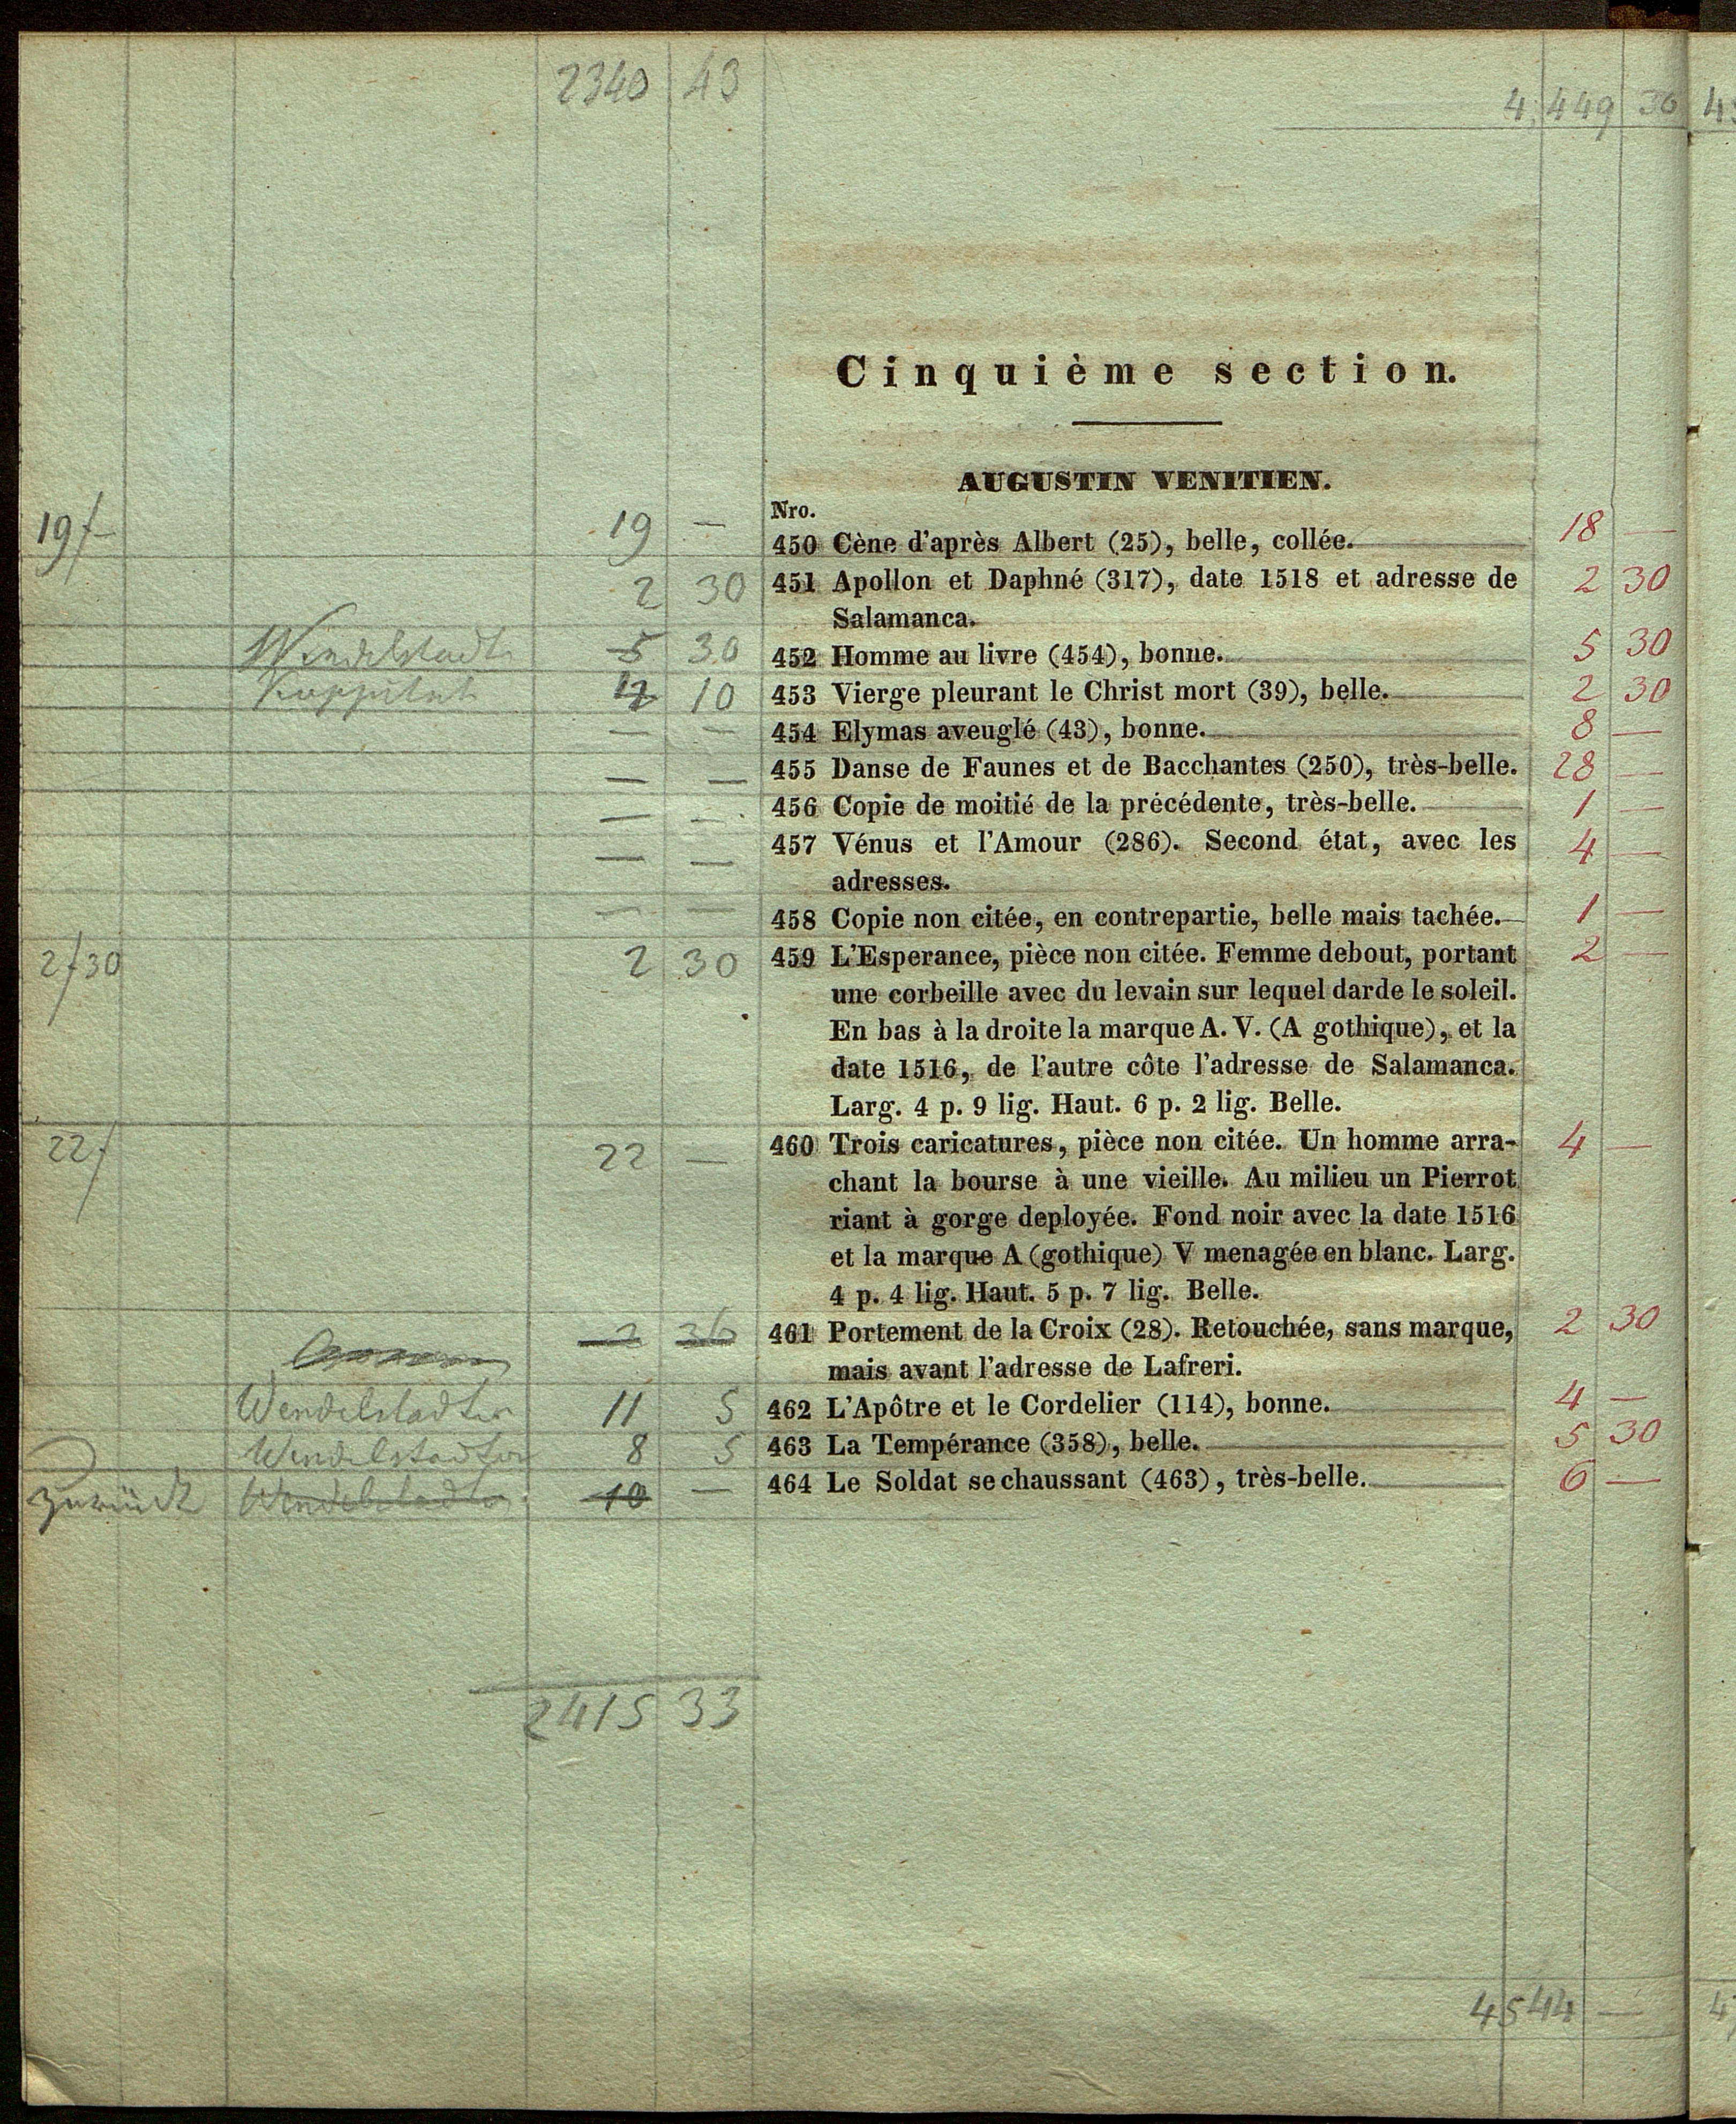 2340 43
4,449 36
Cinquième section.
AUGUSTIN VENITIEN.
Nro.
19f – 19 — 450 Cène d'après Albert (25), belle, collée. 18 —
2 30 451 Apollon et Daphné (317), date 1518 et adresse de 2 30
Salamanca.
Wendelstadt 5 30 452 Homme au livre (454), bonne. 5 30
10 453 Vierge pleurant le Christ mort (39), belle. 2 30
— — 454 Elymas aveuglé (43), bonne. 8 —
— — 455 Danse de Faunes et de Bacchantes (250), très-belle. 28 —
— — 456 Copie de moitié de la précédente, très-belle. 1 —
— — 457 Vénus et l'Amour (286). Second état, avec les 4 —
adresses.
— — 458 Copie non citée, en contrepartie, belle mais tachée. 1 —
2f30 2 30 459 L'Esperance, pièce non citée. Femme debout, portant 2 —
une corbeille avec du levain sur lequel darde le soleil.
En bas à la droite la marque A. V. (A gothique), et la
date 1516, de l'autre côte l'adresse de Salamanca.
Larg. 4 p. 9 lig. Haut. 6 p. 2 lig. Belle.
22f 22 — 460 Trois caricatures, pièce non citée. Un homme arra- 4 —
chant la bourse à une vieille. Au milieu un Pierrot
riant à gorge deployée. Fond noir avec la date 1516
et la marque A (gothique) V menagée en blanc. Larg.
4 p. 4 lig. Haut. 5 p. 7 lig. Belle.
2 36 461 Portement de la Croix (28). Retouchée, sans marque, 2 30
mais avant l'adresse de Lafreri.
Wendelstadter 11 5 462 L'Apôtre et le Cordelier (114), bonne. 4 —
Wendelstadter 8 5 463 La Tempérance (358), belle. 5 30
zurück Wendelstadter 10 — 464 Le Soldat se chaussant (463), très-belle. 6 —
2415 33
4544 —